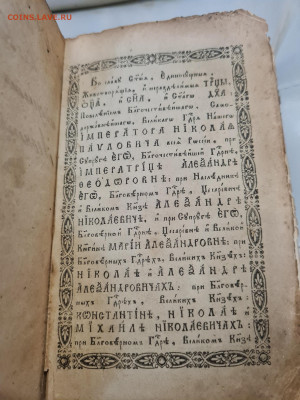 СОИНЫ.LAVE.RU
Во славу Ст҃ыѧ, Единосꙋщныѧ,
Животворѧщїѧ, и нераздѣлимыѧ ТРЦЫ,
ОЦ҃А, и СН҃А, и Ст҃агѡ ДХ҃А:
Повелѣнїемъ Бл҃гочестивѣйшагѡ, Само-
державнѣйшагѡ, Великагѡ Гдⷭ҇рѧ Нашегѡ
ІМПЕРАТОРА НІКОЛАѦ
ПАѴЛОВИЧА всеѧ Рѡссїи, при
Сꙋпрꙋгѣ ЕГѠ, Бл҃гочестивѣйшей Гдⷭ҇рнѣ,
ІМПЕРАТРИЦѢ АЛЕѮАНДРѢ
ѲЕОДѠРОВНѢ: при Наслѣдникѣ
ЕГѠ, Бл҃говѣрномъ Гдⷭ҇рѣ, Цесаревичѣ
и Великомъ Кнѧзѣ АЛЕѮАНДРѢ
НІКОЛАЕВИЧѢ, и при Сꙋпрꙋгѣ ЕГѠ,
Бл҃говѣрной Гдⷭ҇рнѣ, Цесаревнѣ и Великой
Кнѧгинѣ МАРІИ АЛЕѮАНДРОВНѢ: при
Бл҃говѣрныхъ Гдⷭ҇рехъ, Великихъ Кнѧзехъ:
НІКОЛАЕ и АЛЕѮАНДРѢ
АЛЕѮАНДРОВИЧАХЪ: при Бл҃говѣр-
ныхъ Гдⷭ҇рехъ, Великихъ Кнѧзехъ:
КѠНСТАНТІНѢ, НІКОЛАЕ и
МІХАИЛѢ НІКОЛАЕВИЧАХЪ:
при Бл҃говѣрномъ Гдⷭ҇рѣ, Великомъ Кнѧзѣ